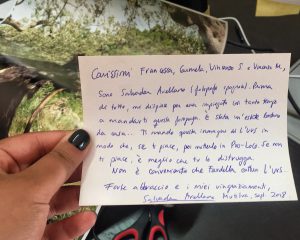 Carissimi Francesca, Carmela, Vincenzo S. e Vincenzo M,
Sono Salvador Arellano (fotografo spagnolo). Prima
di tutto, mi dispiace per aver impiegato così tanto tempo
a mandarvi questa fotografia è stata un'estate lontano
da casa... Ti mando questa immagine di L'URS in
modo che, se ti piace, per metterlo in Pro-Loco. Se non
ti piace, è meglio che tu lo distrugga.
Non è conveniente che Tardella ottenga L'URS
Forte abbraccio e i miei ringraziamenti,
Salvador Arellano sept. 2018